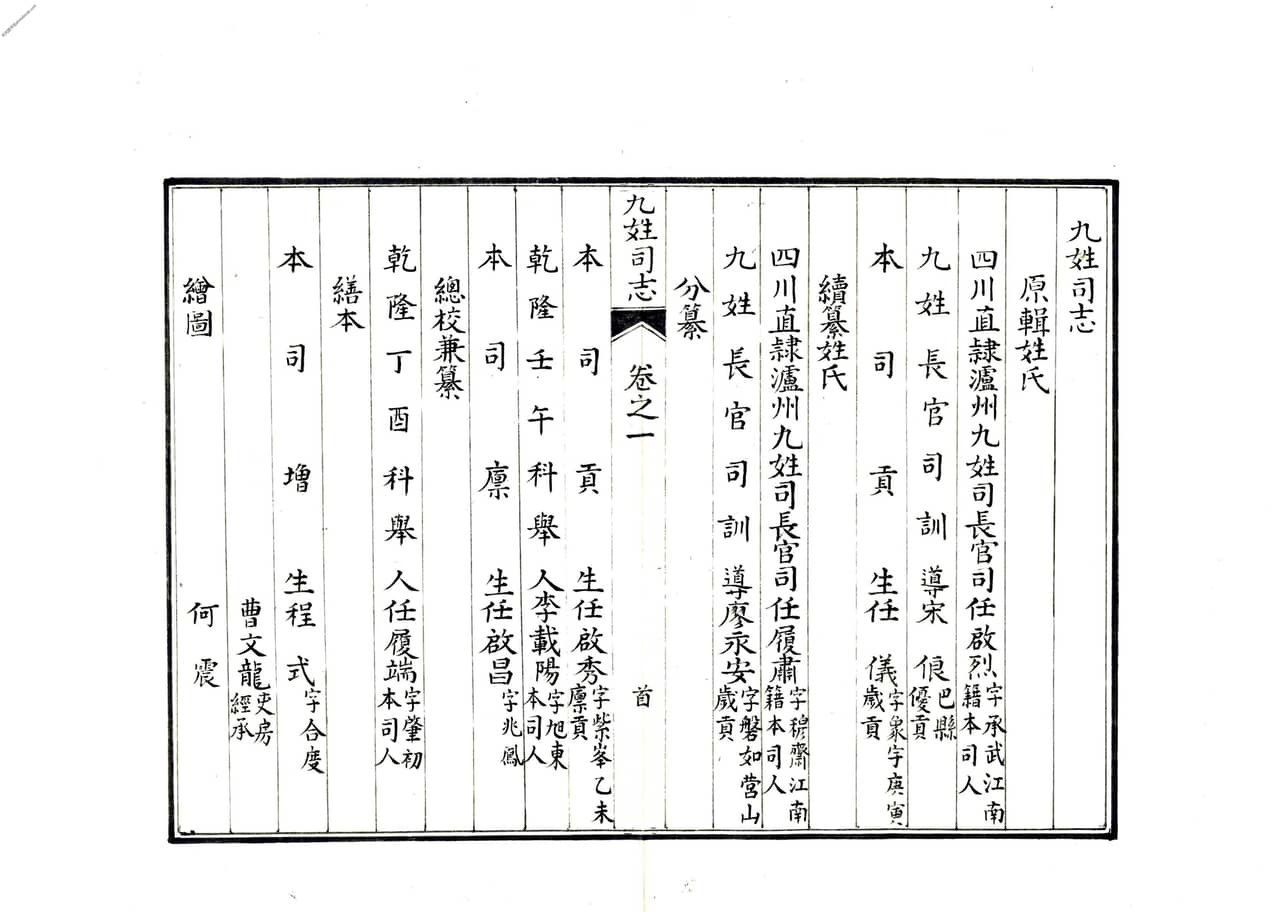 九姓司志
原輯姓氏
四川直隸瀘州九姓司長官司任啟烈字承武江南籍本司人
九姓長官司訓導宋俍巴縣優貢
本司貢生任儀字象字庚寅歲貢
續纂姓氏
四川直隸瀘州九姓司長官司任履肅字穆齋江南籍本司人
九姓長官司訓導廖永安字磐如營山歲貢
分纂
九姓司志 卷之一 首
本司貢生任啟秀字紫峯乙未廩貢
乾隆壬午科舉人李載陽字旭東本司人
本司廩生任啟昌字兆鳳
總校兼纂
乾隆丁酉科舉人任履端字肇初本司人
繕本
本司增生程式字合度
曹文龍吏房經承
繪圖
何震